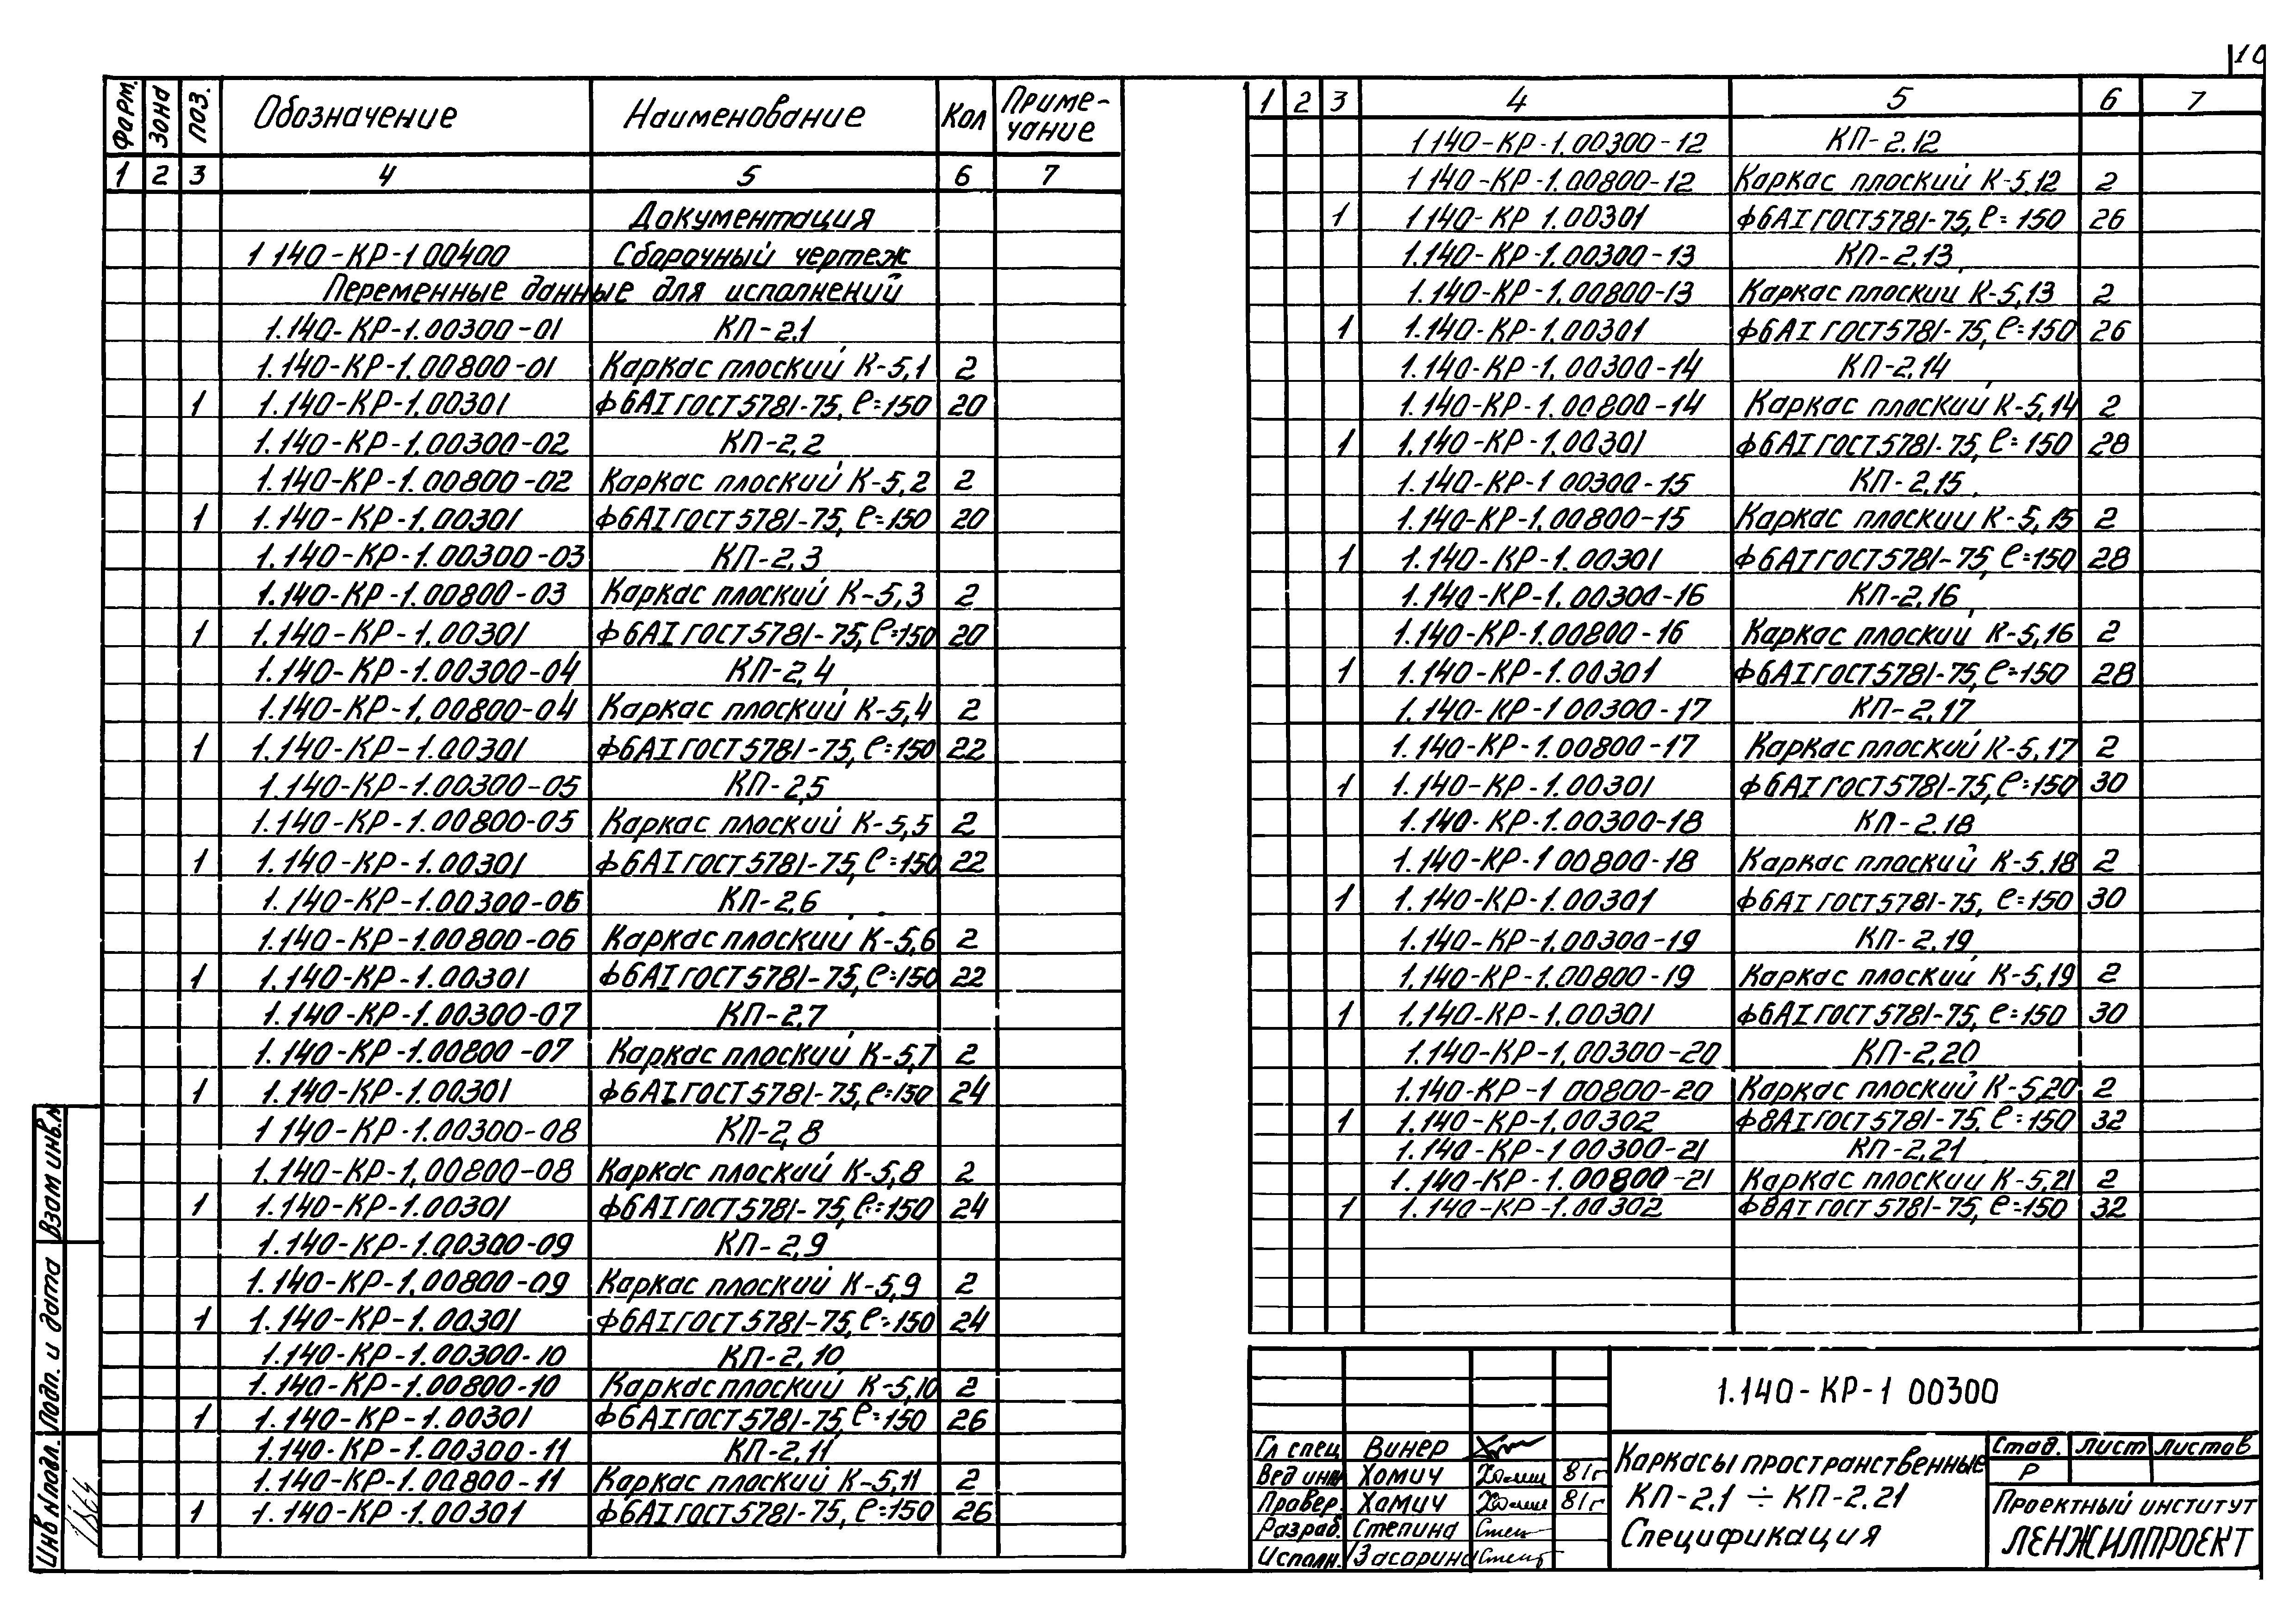 10
Форм. Зона Поз. Обозначение Наименование Кол Приме-чание
1 2 3 4 5 6 7
Документация
1 140-КР-1.00400 Сборочный чертеж
Переменные данные для исполнений
1.140-КР-1.00300-01 КП-2,1
1.140-КР-1.00800-01 Каркас плоский К-5,1 2
1 1.140-КР-1.00301 ф6АI ГОСТ 5781-75, ℓ=150 20
1.140-КР-1.00300-02 КП-2,2
1.140-КР-1.00800-02 Каркас плоский К-5,2 2
1 1.140-КР-1.00301 ф6АI ГОСТ 5781-75, ℓ=150 20
1.140-КР-1.00300-03 КП-2,3
1.140-КР-1.00800-03 Каркас плоский К-5,3 2
1 1.140-КР-1.00301 ф6АI ГОСТ 5781-75, ℓ=150 20
1.140-КР-1.00300-04 КП-2,4
1.140-КР-1.00800-04 Каркас плоский К-5,4 2
1 1.140-КР-1.00301 ф6АI ГОСТ 5781-75, ℓ=150 22
1.140-КР-1.00300-05 КП-2,5
1.140-КР-1.00800-05 Каркас плоский К-5,5 2
1 1.140-КР-1.00301 ф6АI ГОСТ 5781-75, ℓ=150 22
1.140-КР-1.00300-06 КП-2,6
1.140-КР-1.00800-06 Каркас плоский К-5,6 2
1 1.140-КР-1.00301 ф6АI ГОСТ 5781-75, ℓ=150 22
1.140-КР-1.00300-07 КП-2,7
1.140-КР-1.00800-07 Каркас плоский К-5,7 2
1 1.140-КР-1.00301 ф6АI ГОСТ 5781-75, ℓ=150 24
1 140-КР-1.00300-08 КП-2,8
1.140-КР-1,00800-08 Каркас плоский К-5,8 2
1 1.140-КР-1.00301 ф6АI ГОСТ 5781-75, ℓ=150 24
1.140-КР-1.00300-09 КП-2,9
1.140-КР-1,00800-09 Каркас плоский К-5,9 2
1 1.140-КР-1.00301 ф6АI ГОСТ 5781-75, ℓ=150 24
1.140-КР-1.00300-10 КП-2,10
1.140-КР-1.00800-10 Каркас плоский К-5,10 2
1 1.140-КР-1.00301 ф6АI ГОСТ 5781-75, ℓ=150 26
1.140-КР-1.00300-11 КП-2,11
1.140-КР-1.00800-11 Каркас плоский К-5,11 2
1 1.140-КР-1.00301 ф6АI ГОСТ 5781-75, ℓ=150 26
1 2 3 4 5 6 7
1 140-КР-1.00300-12 КП-2.12
1 140-КР-1.00800-12 Каркас плоский К-5,12 2
1 1.140-КР 1.00301 ф6АI ГОСТ 5781-75, ℓ=150 26
1.140-КР-1.00300-13 КП-2,13
1.140-КР-1.00800-13 Каркас плоский К-5,13 2
1 1.140-КР-1.00301 ф6АI ГОСТ 5781-75, ℓ=150 26
1.140-КР-1.00300-14 КП-2,14
1.140-КР-1.00800-14 Каркас плоский К-5,14 2
1 1.140-КР-1.00301 ф6АI ГОСТ 5781-75, ℓ=150 28
1.140-КР-1 00300-15 КП-2,15
1.140-КР-1.00800-15 Каркас плоский К-5,15 2
1 1.140-КР-1.00301 ф6АI ГОСТ 5781-75, ℓ=150 28
1.140-КР-1.00300-16 КП-2,16
1.140-КР-1.00800-16 Каркас плоский К-5,16 2
1 1.140-КР-1.00301 ф6АI ГОСТ 5781-75, ℓ=150 28
1.140-КР-1 00300-17 КП-2,17
1.140-КР-1.00800-17 Каркас плоский К-5,17 2
1 1.140-КР-1.00301 ф6АI ГОСТ 5781-75, ℓ=150 30
1.140-КР-1.00300-18 КП-2.18
1.140-КР-1 00800-18 Каркас плоский К-5.18 2
1 1.140-КР-1.00301 ф6АI ГОСТ 5781-75, ℓ=150 30
1.140-КР-1.00300-19 КП-2,19
1.140-КР-1.00800-19 Каркас плоский К-5,19 2
1 1.140-КР-1.00301 ф6АI ГОСТ 5781-75, ℓ=150 30
1.140-КР-1,00300-20 КП-2,20
1.140-КР-1 00800-20 Каркас плоский К-5,20 2
1 1.140-КР-1.00302 ф8АI ГОСТ 5781-75, ℓ=150 32
1.140-КР-1 00300-21 КП-2,21
1.140-КР-1.00800-21 Каркас плоский К-5,21 2
1 1.140-КР-1.00302 ф8АI ГОСТ 5781-75, ℓ=150 32
Взам инв.№
Подп. и дата
Инв № подл.
1.140-КР-1 00300
Гл спец Винер
Вед инж Хомич 81г
Провер. Хомич 81г
Разраб. Степина
Исполн. Засорина
Каркасы пространственные
КП-2.1 ÷ КП-2.21
Спецификация
Стад. лист листов
Р
Проектный институт
ЛЕНЖИЛПРОЕКТ